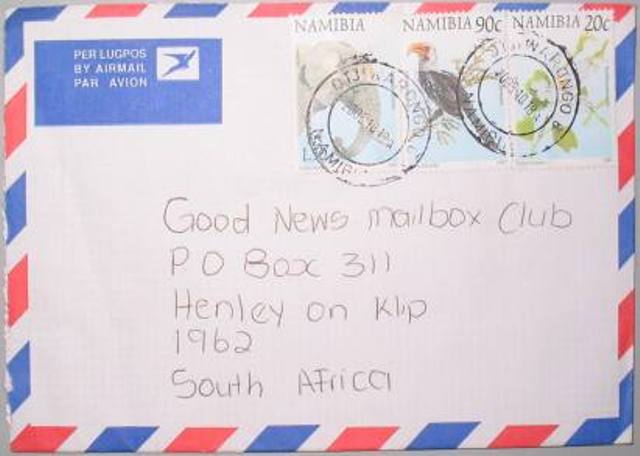 PER LUGPOS
BY AIRMAIL
PAR AVION
NAMIBIA
NAMIBIA 90c
NAMIBIA 20c
OTJIWARONGO
NAMIBIA
OTJIWARONGO
Good News mailbox Club
P O Box 311
Henley on Klip
1962
South Africa